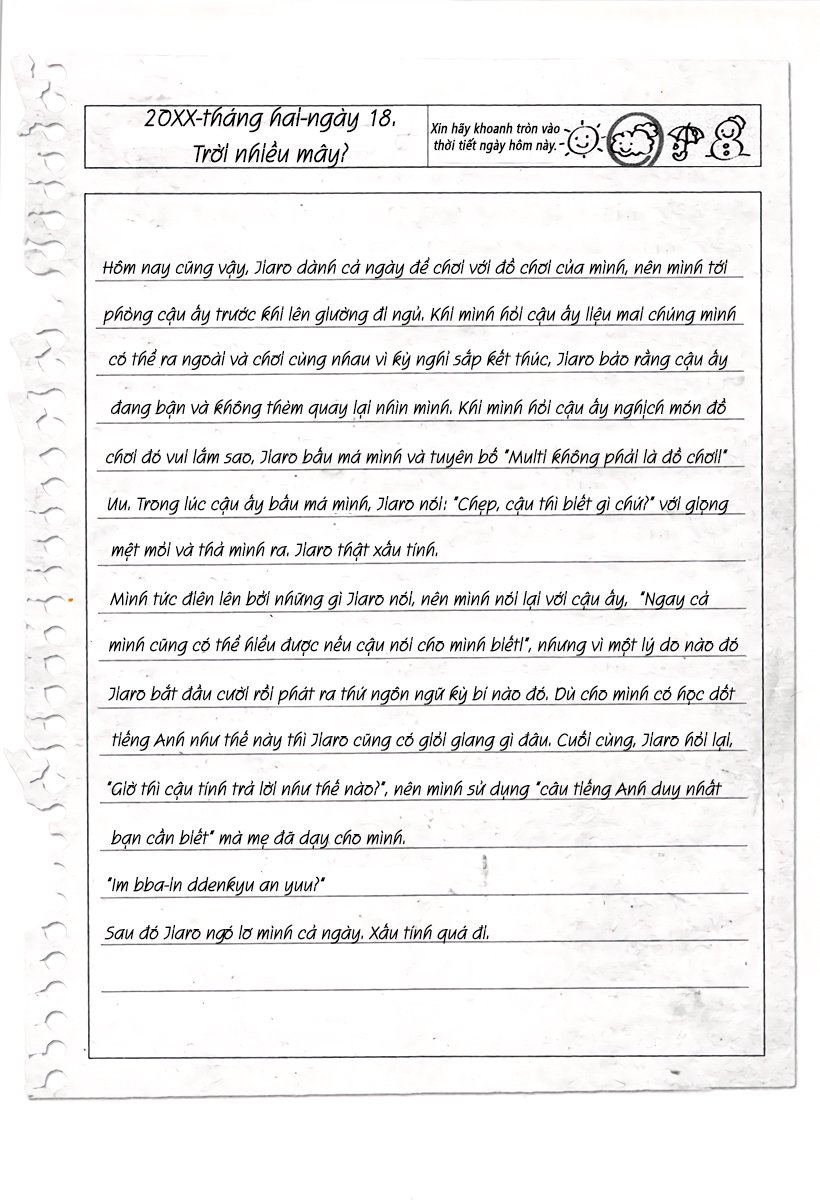 20XX-tháng hai-ngày 18.
Trời nhiều mây?
Xin hãy khoanh tròn vào
thời tiết ngày hôm này.
Hôm nay cũng vậy, Jiaro dành cả ngày để chơi với đồ chơi của mình, nên mình tới
phòng cậu ấy trước khi lên giường đi ngủ. Khi mình hỏi cậu ấy liệu mai chúng mình
có thể ra ngoài và chơi cùng nhau vì kỳ nghỉ sắp kết thúc, Jiaro bảo rằng cậu ấy
đang bận và không thèm quay lại nhìn mình. Khi mình hỏi cậu ấy nghịch món đồ
chơi đó vui lắm sao, Jiaro bấu má mình và tuyên bố "Multi không phải là đồ chơi!"
Uu. Trong lúc cậu ấy bấu má mình, Jiaro nói: "Chẹp, cậu thì biết gì chứ?" với giọng
mệt mỏi và thả mình ra. Jiaro thật xấu tính.
Mình tức điên lên bởi những gì Jiaro nói, nên mình nói lại với cậu ấy, "Ngay cả
mình cũng có thể hiểu được nếu cậu nói cho mình biết!", nhưng vì một lý do nào đó
Jiaro bắt đầu cười rồi phát ra thứ ngôn ngữ kỳ bí nào đó. Dù cho mình có học dốt
tiếng Anh như thế này thì Jiaro cũng có giỏi giang gì đâu. Cuối cùng, Jiaro hỏi lại,
"Giờ thì cậu tính trả lời như thế nào?", nên mình sử dụng "câu tiếng Anh duy nhất
bạn cần biết" mà mẹ đã dạy cho mình.
"Im bba-in ddenkyu an yuu?"
Sau đó Jiaro ngó lơ mình cả ngày. Xấu tính quá đi.